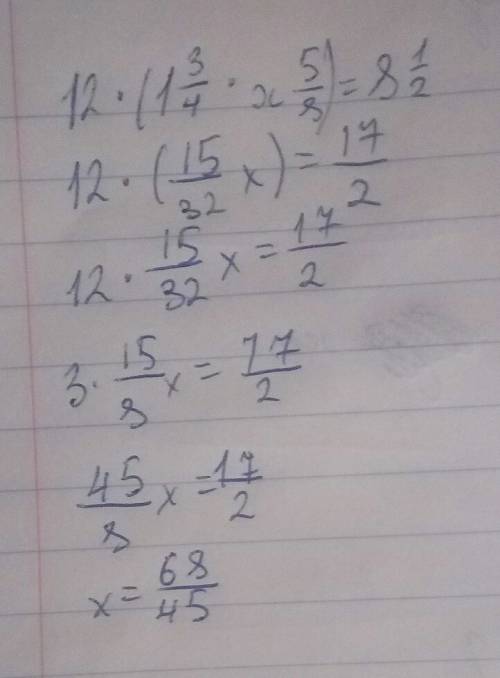 12 · (1 3/4 · x 5/8) = 8 1/2
12 · (15/32 x) = 17/2
12 · 15/32 x = 17/2
3 · 15/8 x = 17/2
45/8 x = 17/2
x = 68/45